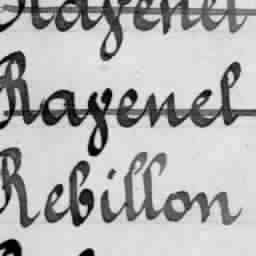 Ragenel
Ragenel
Rebillon